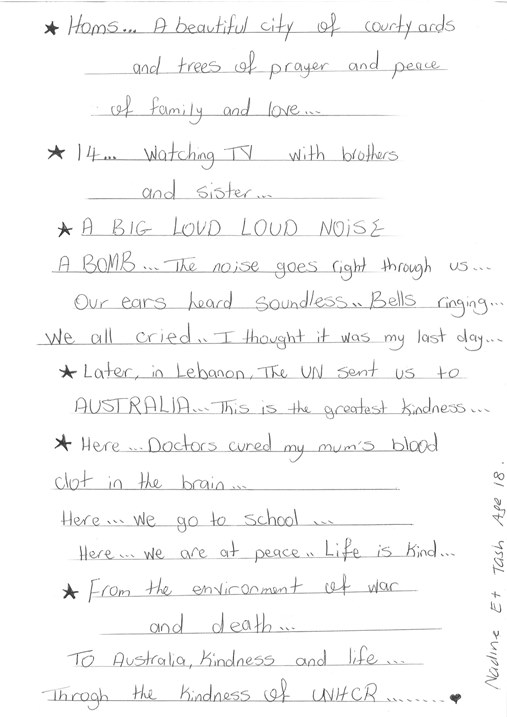 ★ Homs... A beautiful city of courtyards
and trees of prayer and peace
of family and love...
★ 14... Watching TV with brothers
and sister...
★ A BIG LOUD LOUD NOISE
A BOMB... The noise goes right through us...
Our ears heard soundless.. Bells ringing...
We all cried.. I thought it was my last day...
★ Later, in Lebanon, The UN sent us to
AUSTRALIA... This is the greatest kindness...
★ Here... Doctors cured my mum's blood
clot in the brain...
Here... We go to school ...
Here... we are at peace.. Life is kind...
★ From the environment of war
and death...
To Australia, kindness and life...
Throgh the kindness of UNHCR........♥
Nadine Et Tash Age 18.